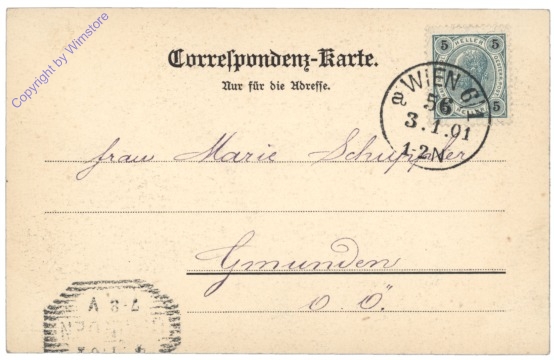 Copyright by Wimstore
Correspondenz-Karte.
Nur für die Adresse.
5 HELLER 5
5
WIEN 6/1
a
56
3.1.01
1-2N
Frau Marie Schuppler
Gmunden
O.Ö.
7-8 V